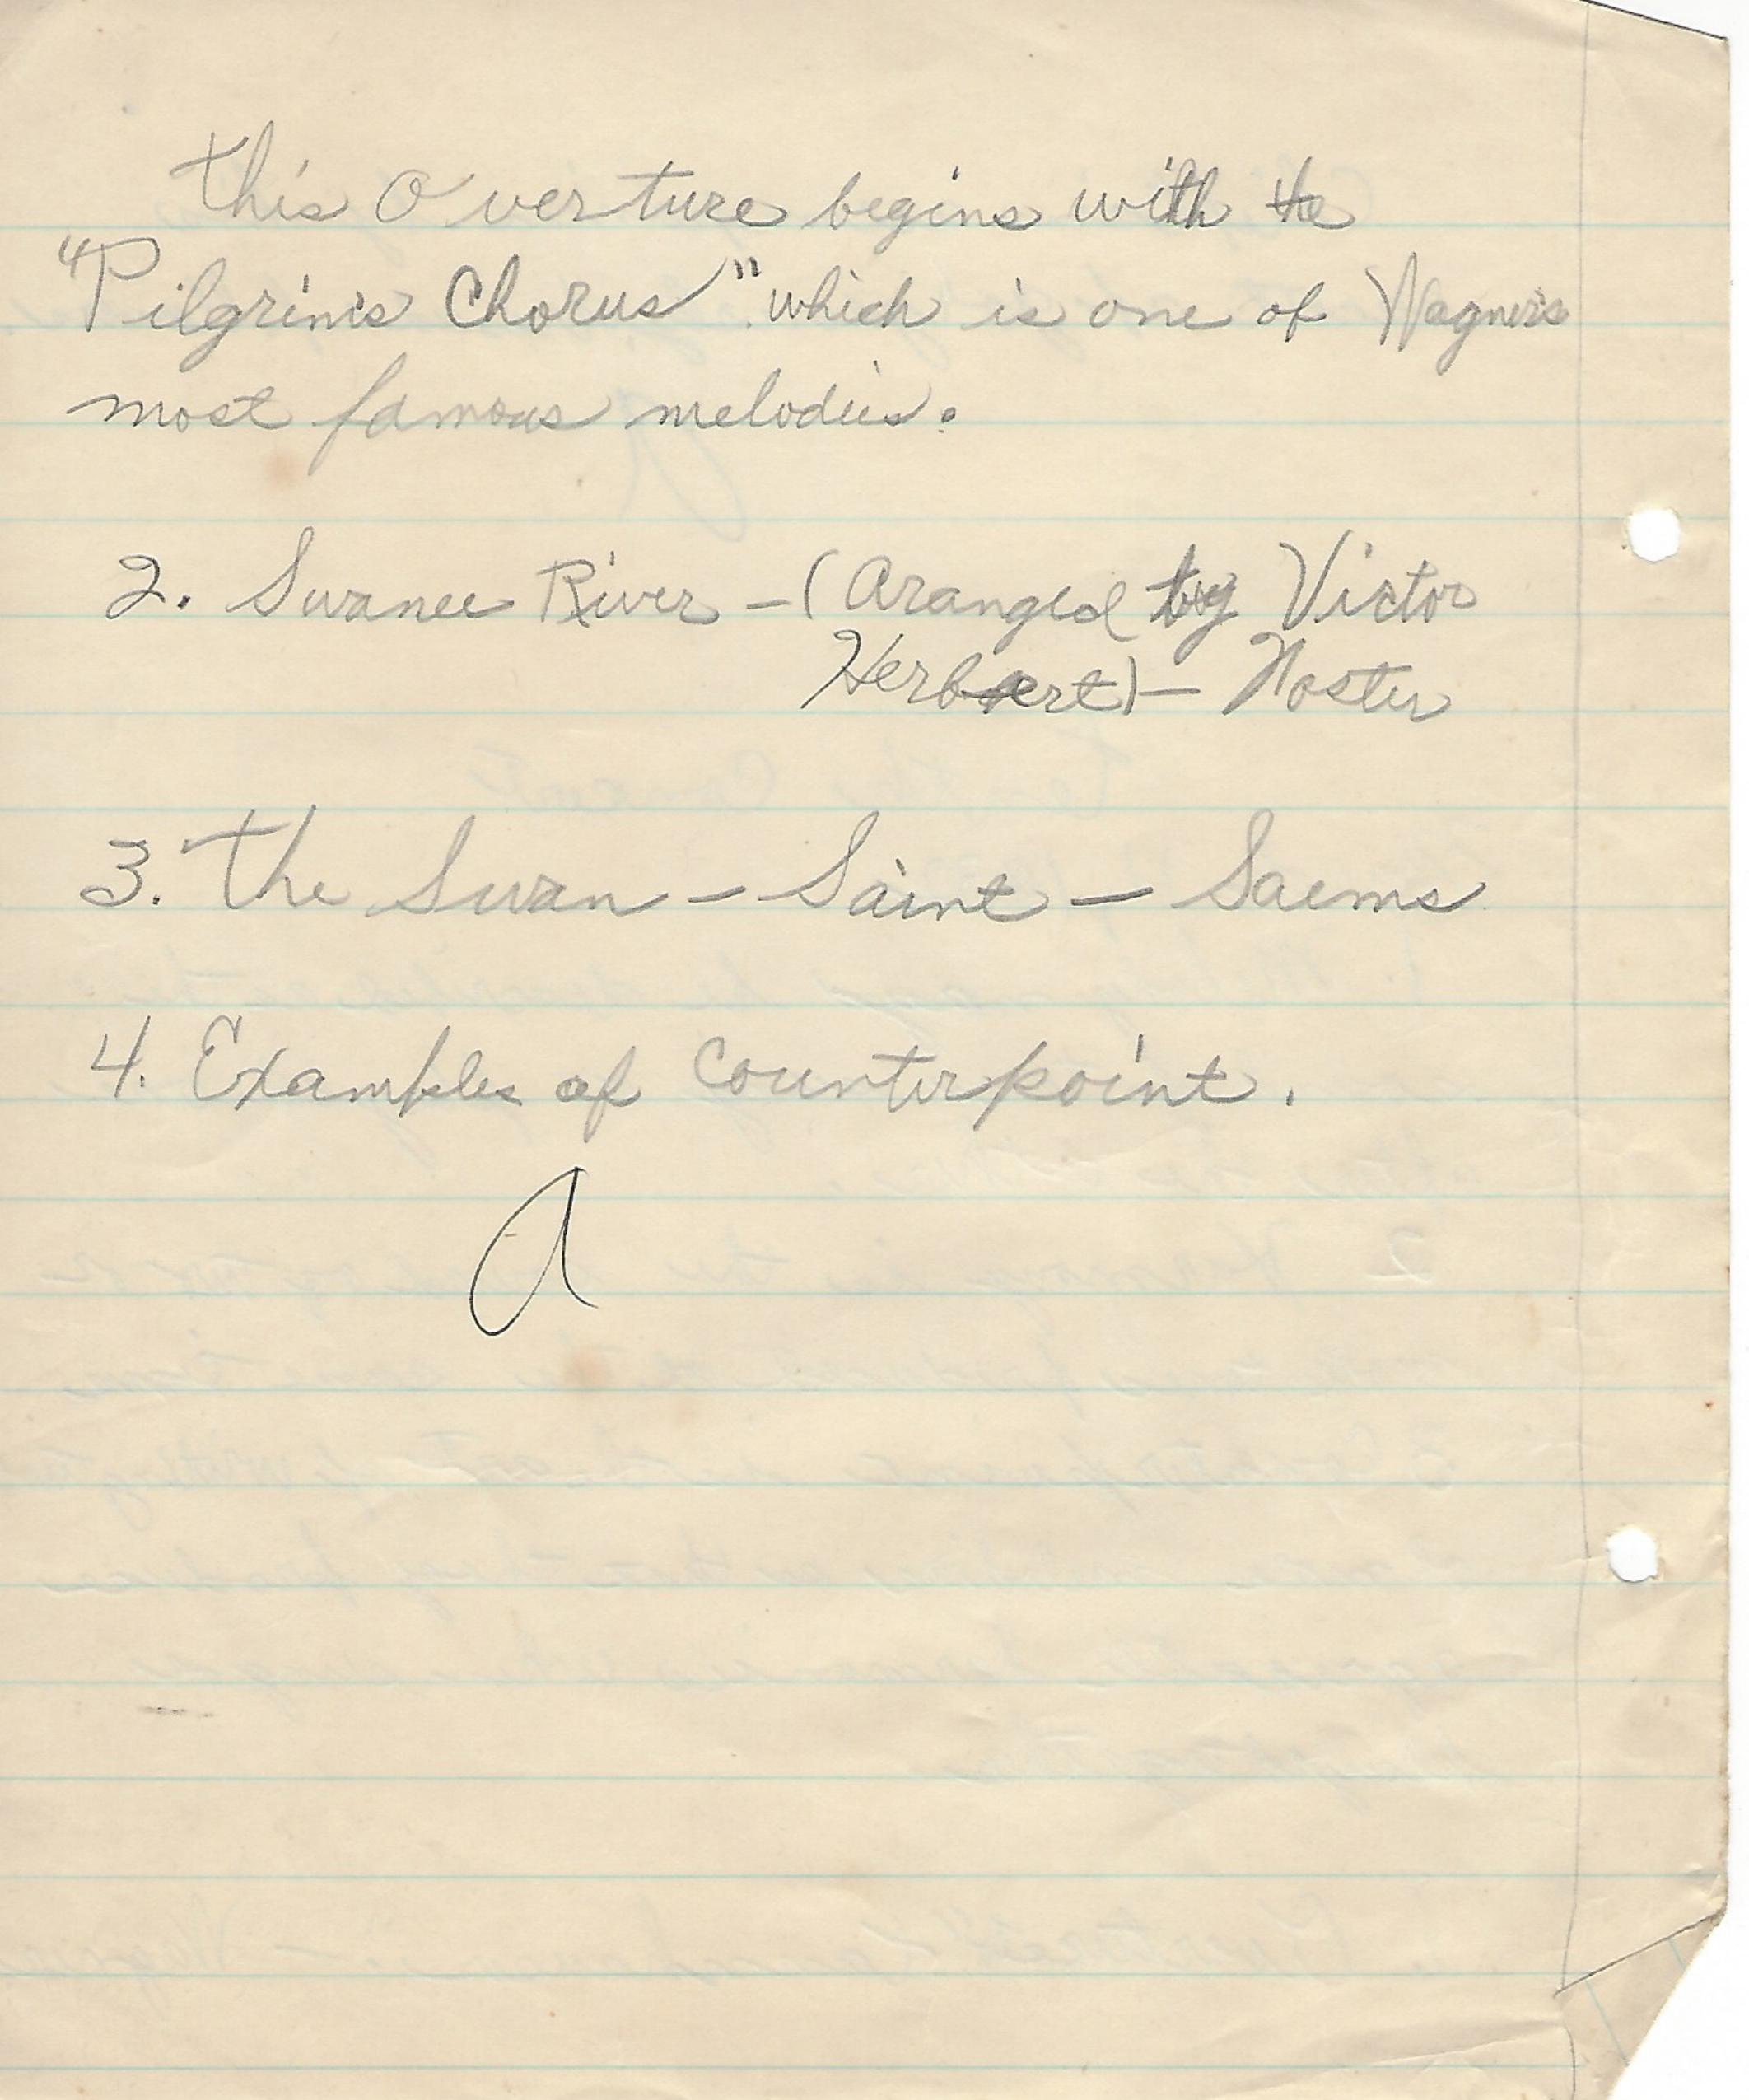 this Overture begins with the
"Pilgrim's Chorus" which is one of Wagner's
most famous melodies.
2. Swanee River - (Aranged by Victor
Herbert) - Foster
3. The Swan - Saint - Saems
4. Examples of Counterpoint.
A